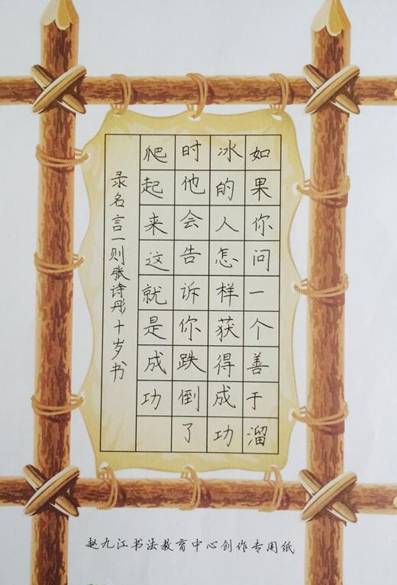 如果你问一个善于溜
冰的人怎样获得成功
时他会告诉你跌倒了
爬起来这就是成功
录名言一则张诗彤十岁书
赵九江书法教育中心创作专用纸